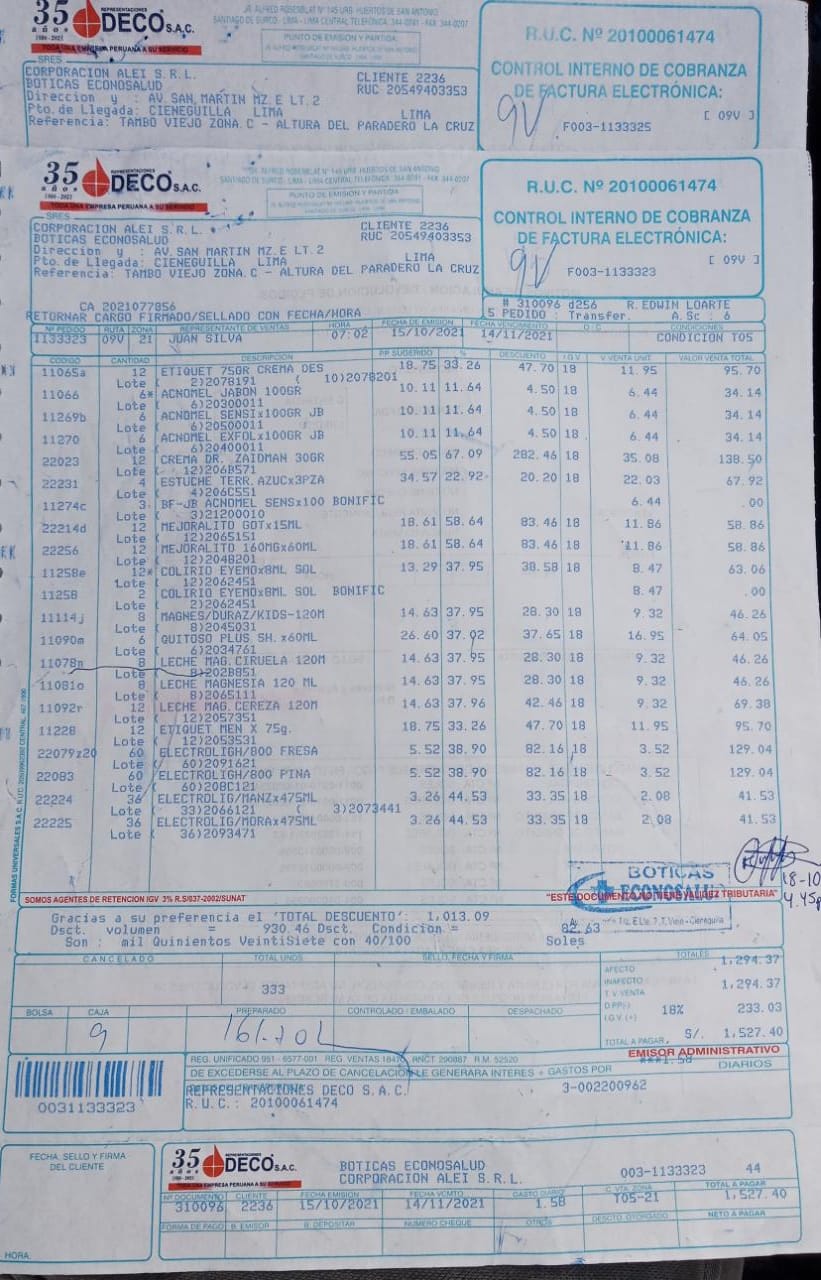 35 años 1986-2021 REPRESENTACIONES DECO S.A.C.
TODA UNA EMPRESA PERUANA A SU SERVICIO
JR. ALFREDO ROSEMBLAT Nº 145 URB. HUERTOS DE SAN ANTONIO
SANTIAGO DE SURCO - LIMA - LIMA CENTRAL TELEFÓNICA: 344-0241 - FAX: 344-0207
PUNTO DE EMISIÓN Y PARTIDA
R.U.C. Nº 20100061474
CONTROL INTERNO DE COBRANZA
DE FACTURA ELECTRÓNICA:
[ 09V ]
9V
F003-1133325
SRES
CORPORACION ALEI S.R.L. CLIENTE 2236
BOTICAS ECONOSALUD RUC 20549403353
Direccion y : AV.SAN MARTIN MZ.E LT.2
Pto.de Llegada: CIENEGUILLA LIMA LIMA
Referencia: TAMBO VIEJO ZONA.C - ALTURA DEL PARADERO LA CRUZ
35 años 1986-2021 REPRESENTACIONES DECO S.A.C.
TODA UNA EMPRESA PERUANA A SU SERVICIO
PUNTO DE EMISIÓN Y PARTIDA
R.U.C. Nº 20100061474
CONTROL INTERNO DE COBRANZA
DE FACTURA ELECTRÓNICA:
[ 09V ]
9V
F003-1133323
SRES
CORPORACION ALEI S.R.L. CLIENTE 2236
BOTICAS ECONOSALUD RUC 20549403353
Direccion y : AV.SAN MARTIN MZ.E LT.2
Pto.de Llegada: CIENEGUILLA LIMA LIMA
Referencia: TAMBO VIEJO ZONA.C - ALTURA DEL PARADERO LA CRUZ
CA 2021077856 # 310096 d256 R.EDWIN LOARTE
RETORNAR CARGO FIRMADO/SELLADO CON FECHA/HORA 5 PEDIDO : Transfer. A.Sc : 6
Nº PEDIDO RUTA ZONA REPRESENTANTE DE VENTAS HORA FECHA DE EMISION FECHA VENCIMIENTO O/C CONDICIONES
1133323 09V 21 JUAN SILVA 07:02 15/10/2021 14/11/2021 CONDICION T05
CODIGO CANTIDAD DESCRIPCION P.P. SUGERIDO % DESCUENTO I.G.V. V. VENTA UNIT. VALOR VENTA TOTAL
11065a 12 ETIQUET 75GR CREMA DES 18.75 33.26 47.70 18 11.95 95.70
Lote ( 2)2078191 ( 10)2078201
11066 6* ACNOMEL JABON 100GR 10.11 11.64 4.50 18 6.44 34.14
Lote ( 6)20300011
11269b 6 ACNOMEL SENSIx100GR JB 10.11 11.64 4.50 18 6.44 34.14
Lote ( 6)20500011
11270 6 ACNOMEL EXFOLx100GR JB 10.11 11.64 4.50 18 6.44 34.14
Lote ( 6)20400011
22023 12 CREMA DR. ZAIDMAN 30GR 55.05 67.09 282.46 18 35.08 138.50
Lote ( 12)206B571
22231 4 ESTUCHE TERR.AZUCx3PZA 34.57 22.92 20.20 18 22.03 67.92
Lote ( 4)206C551
11274c 3 BF-JB ACNOMEL SENSx100 BONIFIC 6.44 .00
Lote ( 3)21200010
22214d 12 MEJORALITO GOTx15ML 18.61 58.64 83.46 18 11.86 58.86
Lote ( 12)2065151
22256 12 MEJORALITO 160MGx60ML 18.61 58.64 83.46 18 11.86 58.86
Lote ( 12)2048201
11258e 12* COLIRIO EYEMOx8ML SOL 13.29 37.95 38.58 18 8.47 63.06
Lote ( 12)2062451
11258 2 COLIRIO EYEMOx8ML SOL BONIFIC 8.47 .00
Lote ( 2)2062451
11114j 8 MAGNES/DURAZ/KIDS-120M 14.63 37.95 28.30 18 9.32 46.26
Lote ( 8)2045031
11090m 6 QUITOSO PLUS SH.x60ML 26.60 37.02 37.65 18 16.95 64.05
Lote ( 6)2034761
11078n 8 LECHE MAG.CIRUELA 120M 14.63 37.95 28.30 18 9.32 46.26
Lote ( 8)202B851
11081o 8 LECHE MAGNESIA 120 ML 14.63 37.95 28.30 18 9.32 46.26
Lote ( 8)2065111
11092r 12 LECHE MAG.CEREZA 120M 14.63 37.96 42.46 18 9.32 69.38
Lote ( 12)2057351
11228 12 ETIQUET MEN X 75g. 18.75 33.26 47.70 18 11.95 95.70
Lote ( 12)2053531
22079z20 60 ELECTROLIGH/800 FRESA 5.52 38.90 82.16 18 3.52 129.04
Lote ( 60)2091621
22083 60 ELECTROLIGH/800 PINA 5.52 38.90 82.16 18 3.52 129.04
Lote ( 60)208C121
22224 36 ELECTROLIG/MANZx475ML 3.26 44.53 33.35 18 2.08 41.53
Lote ( 33)2066121 ( 3)2073441
22225 36 ELECTROLIG/MORAx475ML 3.26 44.53 33.35 18 2.08 41.53
Lote ( 36)2093471
BOTICAS
ECONOSALUD
18-10
4.45p
SOMOS AGENTES DE RETENCION IGV 3% R.S/037-2002/SUNAT
"ESTE DOCUMENTO NO TIENE VALIDEZ TRIBUTARIA"
Gracias a su preferencia el 'TOTAL DESCUENTO': 1,013.09
Dsct. volumen = 930.46 Dsct. Condicion = 82.63
Son : mil Quinientos VeintiSiete con 40/100 Soles
CANCELADO TOTAL UNDS SELLO, FECHA Y FIRMA TOTALES
333
AFECTO 1,294.37
INAFECTO
T. V. VENTA 1,294.37
D.P.P.(-)
I.G.V. (+) 18% 233.03
TOTAL A PAGAR S/. 1,527.40
BOLSA CAJA PREPARADO CONTROLADO / EMBALADO DESPACHADO
9
EMISOR ADMINISTRATIVO
***1.58 DIARIOS
REG. UNIFICADO 951 - 6577-001 REG. VENTAS RNCT 290887 R.M. 52520
DE EXCEDERSE AL PLAZO DE CANCELACION LE GENERARA INTERES + GASTOS POR
REPRESENTACIONES DECO S.A.C. 3-002200962
R.U.C.: 20100061474
0031133323
FECHA, SELLO Y FIRMA
DEL CLIENTE
HORA:
35 años 1986-2021 REPRESENTACIONES DECO S.A.C.
TODA UNA EMPRESA PERUANA A SU SERVICIO
BOTICAS ECONOSALUD
CORPORACION ALEI S.R.L.
003-1133323 44
Nº DOCUMENTO CLIENTE FECHA EMISION FECHA VCMTO GASTO DIARIO C. VTA. ZONA TOTAL A PAGAR
310096 2236 15/10/2021 14/11/2021 1.58 T05-21 1,527.40
FORMA DE PAGO B. EMISOR B. DEPOSITAR NUMERO CHEQUE OTROS DESCTO. OTORGADO NETO A PAGAR